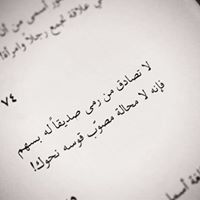 في علاقة تجمع رجلاً وامرأة!
٧٤
لا تصادق من رمى صديقاً له بسهم
فإنه لا محالة مصوّب قوسه نحوك!